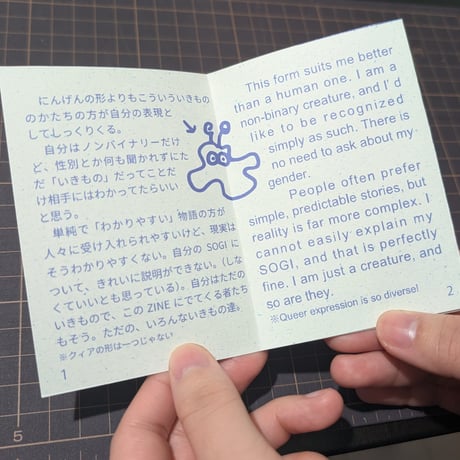 にんげんの形よりもこういういきもの
のかたちの方が自分の表現と
してしっくりくる。
自分はノンバイナリーだけ
ど、性別とか何も聞かれずにた
だ「いきもの」だってことだ
け相手にはわかってたらいい
と思う。
単純で「わかりやすい」物語の方が
人々に受け入れられやすいけど、現実は
そうわかりやすくない。自分の SOGI に
ついて、きれいに説明ができない。(しな
くていいとも思っている)。自分はただの
いきもので、この ZINE にでてくる者たち
もそう。ただの、いろんないきもの達。
※クィアの形は一つじゃない
1
This form suits me better
than a human one. I am a
non-binary creature, and I'd
like to be recognized
simply as such. There is
no need to ask about my
gender.
People often prefer
simple, predictable stories, but
reality is far more complex. I
cannot easily explain my
SOGI, and that is perfectly
fine. I am just a creature, and
so are they.
※Queer expression is so diverse!
2
5